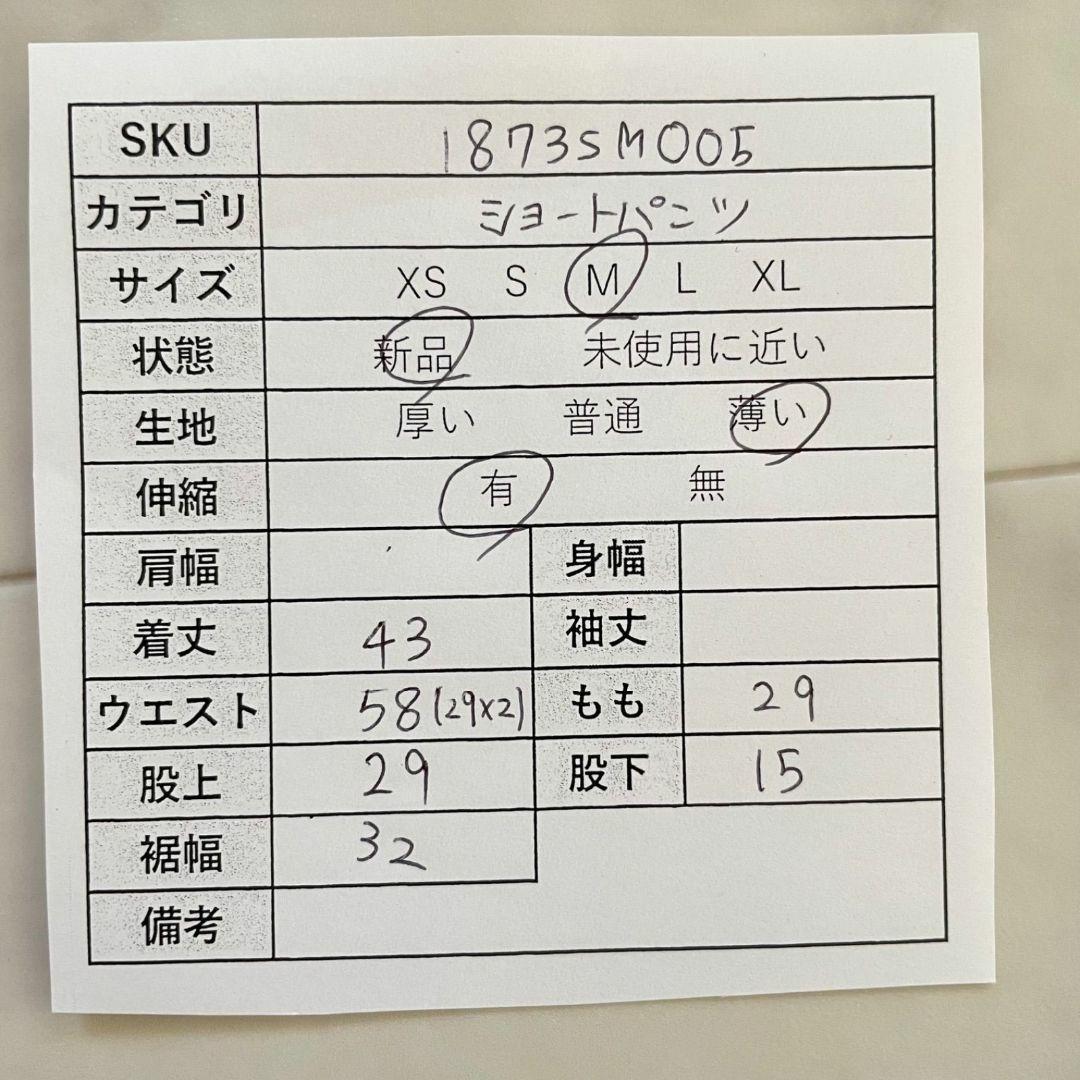 SKU 1873SM005
カテゴリ ショートパンツ
サイズ XS S M L XL
状態 新品 未使用に近い
生地 厚い 普通 薄い
伸縮 有 無
肩幅 身幅
着丈 43 袖丈
ウエスト 58(29×2) もも 29
股上 29 股下 15
裾幅 32
備考